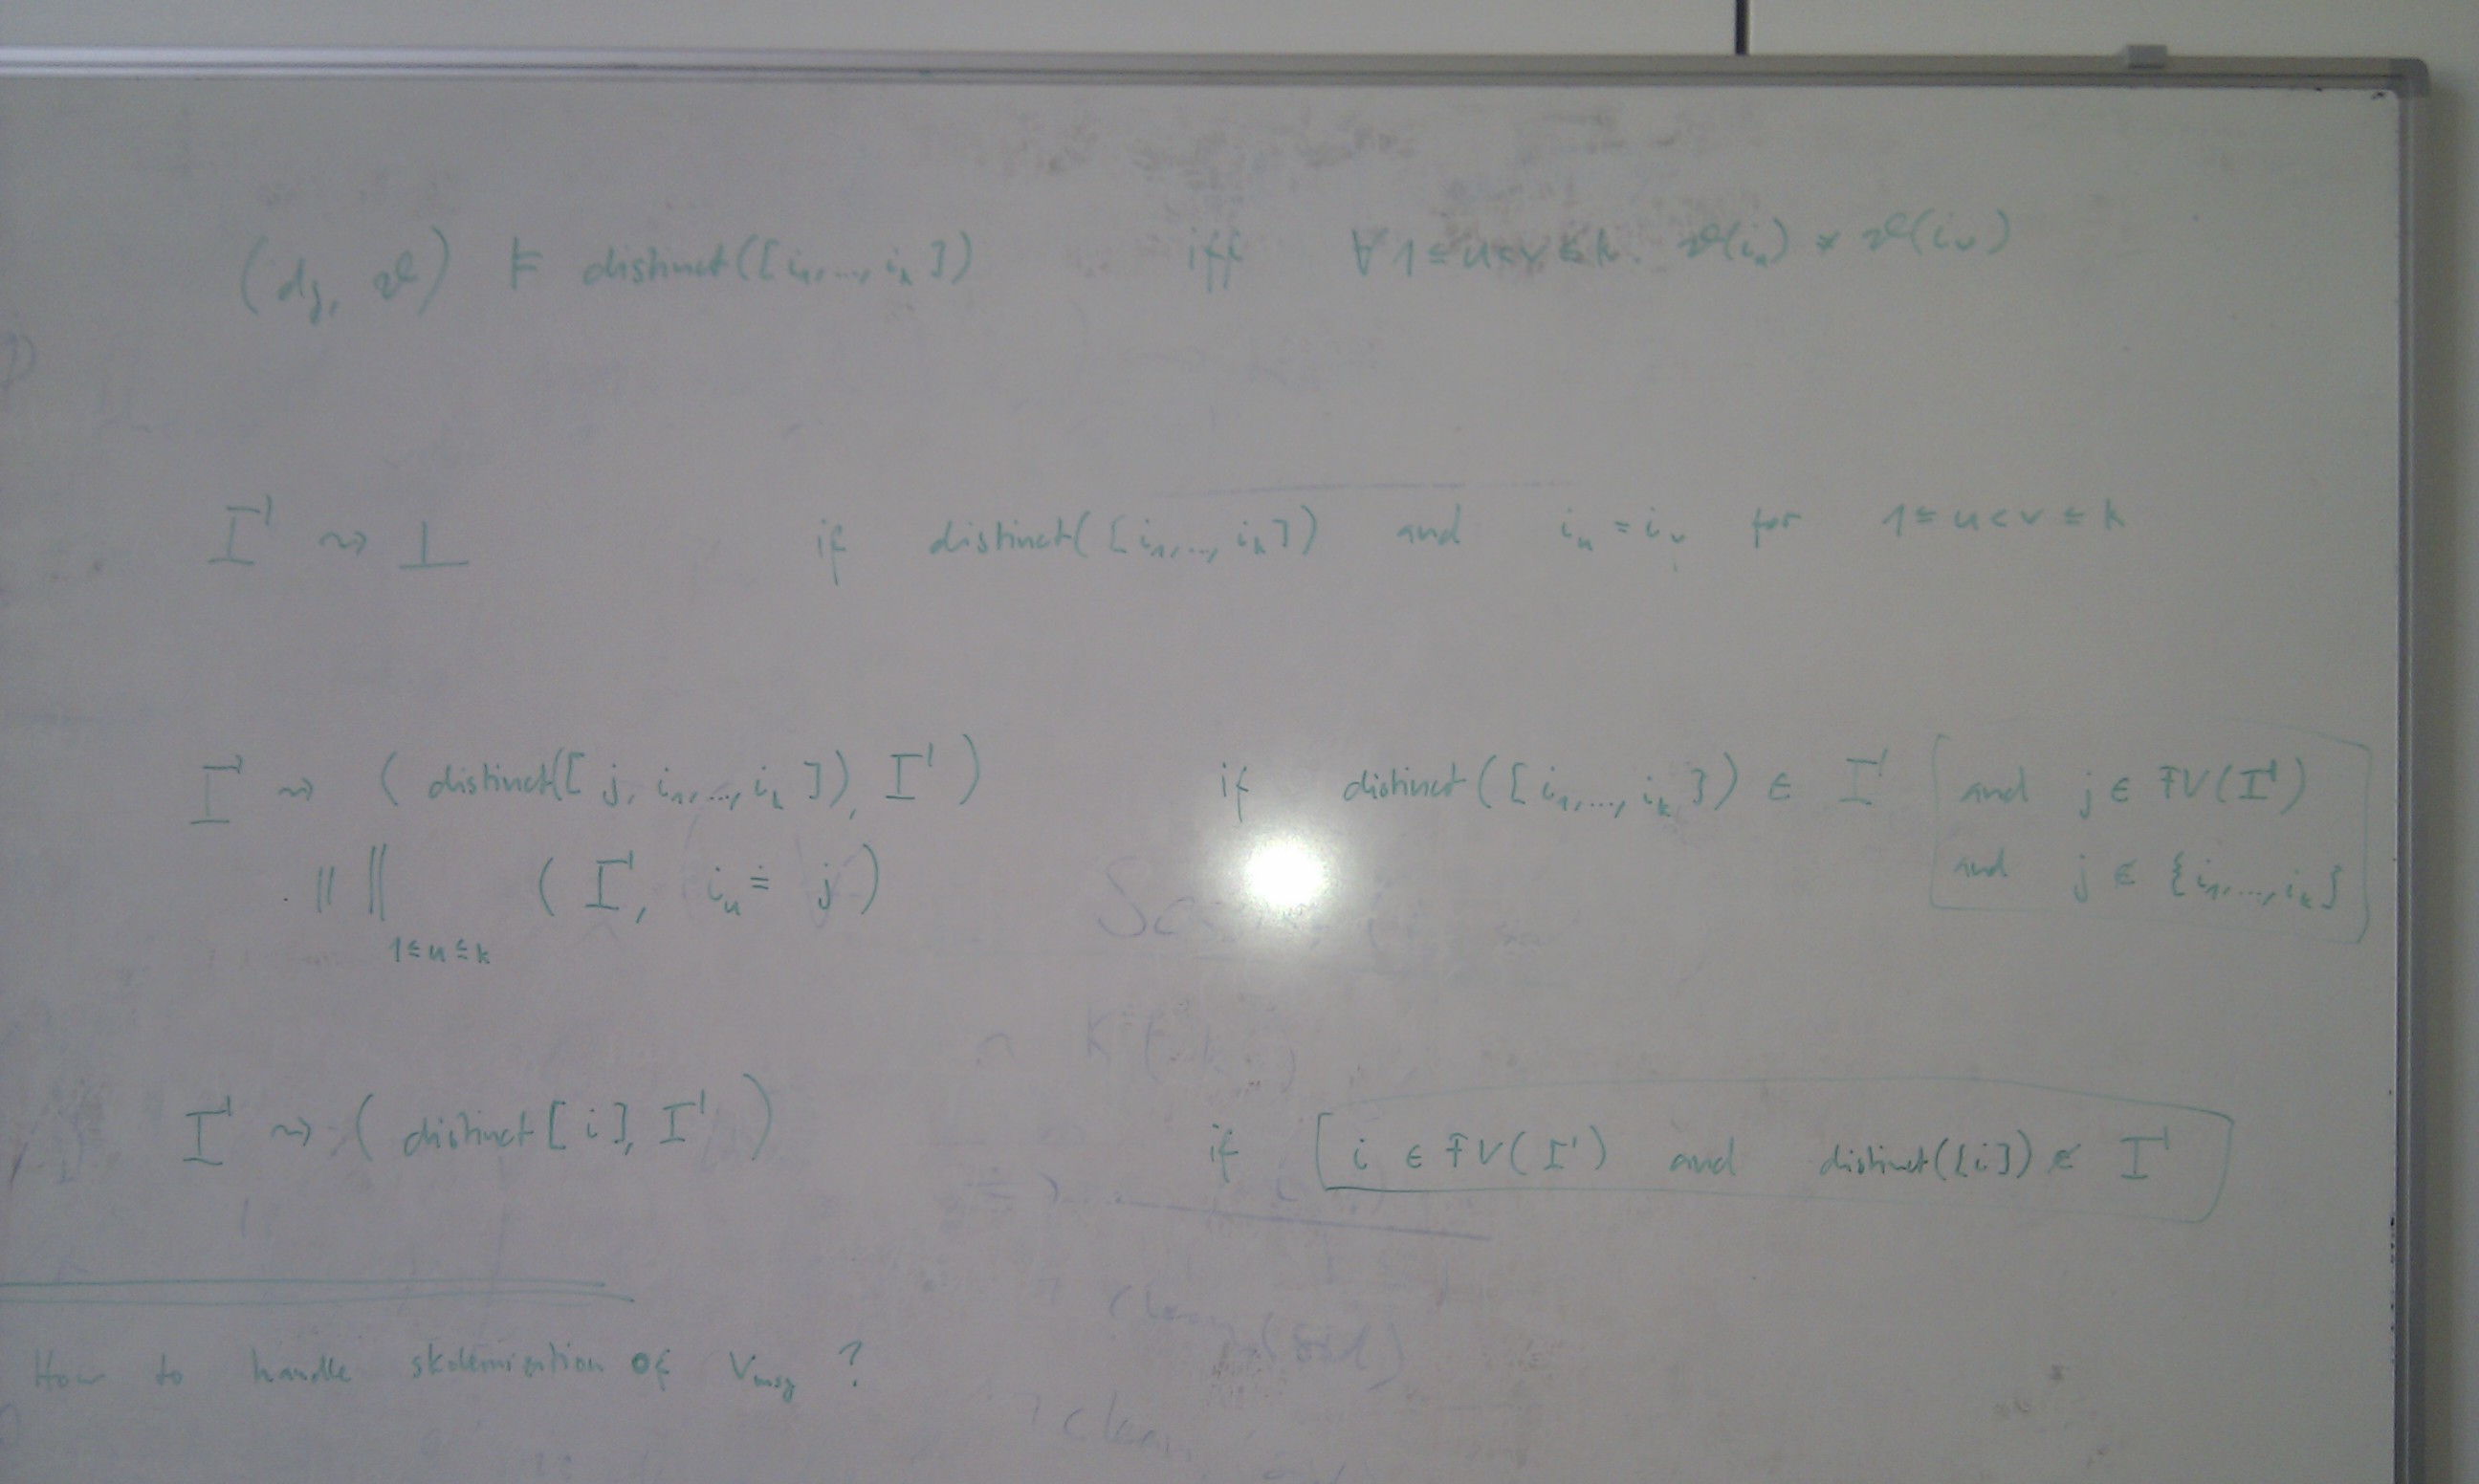 (dg, ϑ) ⊨ distinct([i₁,...,iₖ]) iff ∀ 1≤u<v≤k. ϑ(iᵤ) ≠ ϑ(iᵥ)
Γ ⇝ ⊥ if distinct([i₁,...,iₖ]) and iᵤ = iᵥ for 1≤u<v≤k
Γ ⇝ (distinct([j, i₁,...,iₖ]), Γ) if distinct([i₁,...,iₖ]) ∈ Γ and j ∈ FV(Γ)
|| || 1≤u≤k (Γ, iᵤ ≐ j) and j ∉ {i₁,...,iₖ}
Γ ⇝ (distinct[i], Γ) if i ∈ FV(Γ) and distinct([i]) ∉ Γ
How to handle skolemization of Vmsg ?
clean